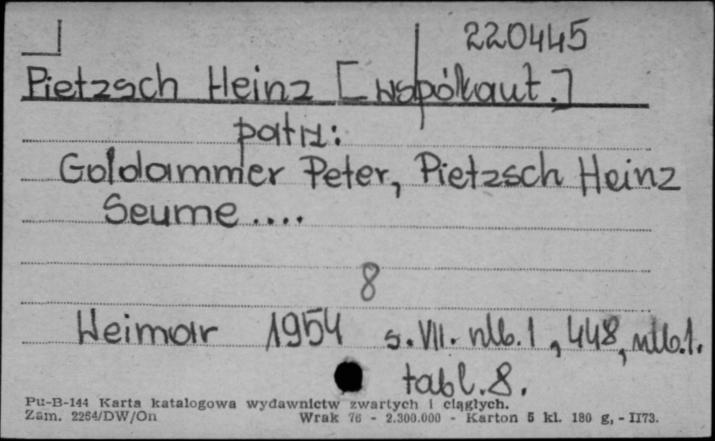 220445
Pietzsch Heinz [współaut.]
patrz:
Goldammer Peter, Pietzsch Heinz
Seume ....
8
Weimar 1954 s. VII. nlb. 1, 448, nlb. 1.
tabl. 8.
Pu-B-144 Karta katalogowa wydawnictw zwartych i ciągłych.
Zam. 2254/DW/On Wrak 76 - 2.300.000 - Karton 5 kl. 180 g, - II73.